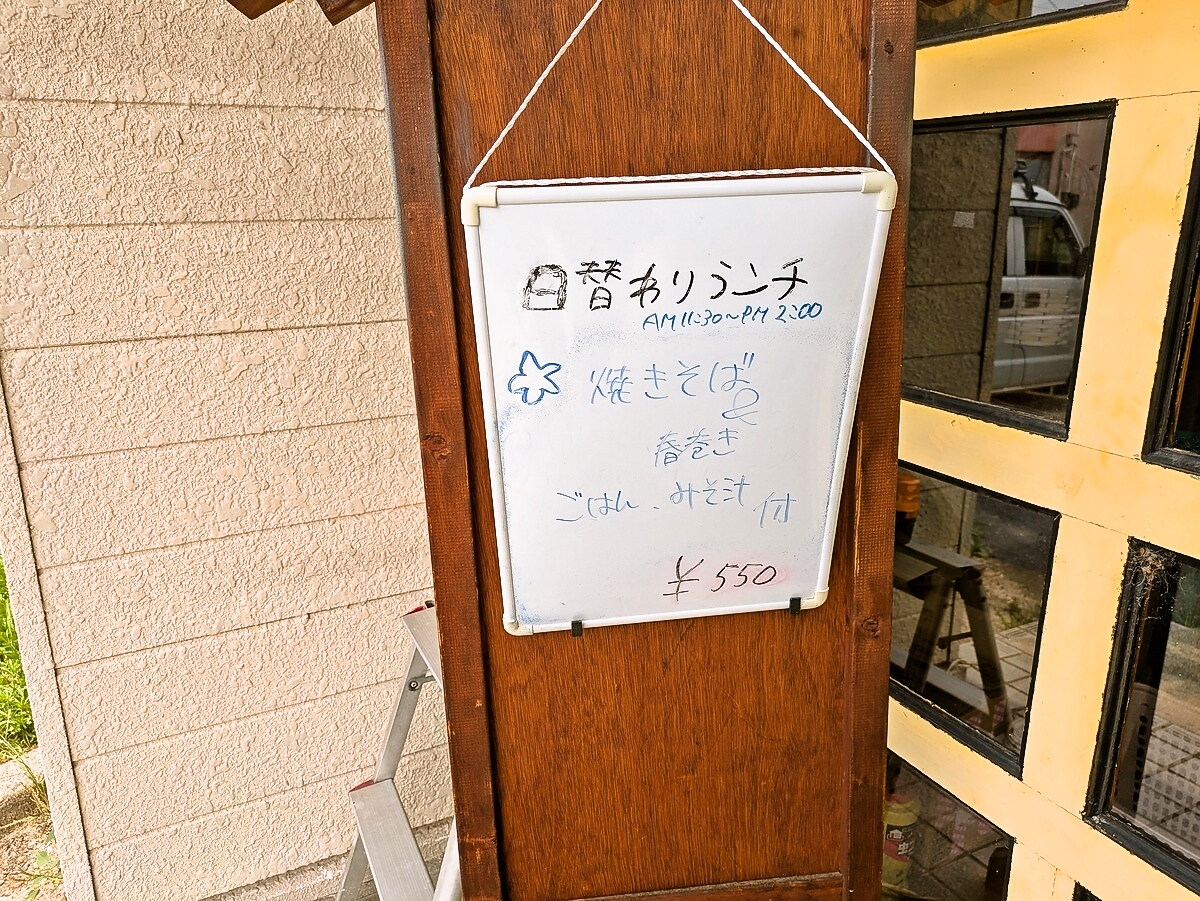 日替わりランチ
AM11:30~PM2:00
焼きそば
&
春巻き
ごはん、みそ汁付
¥550